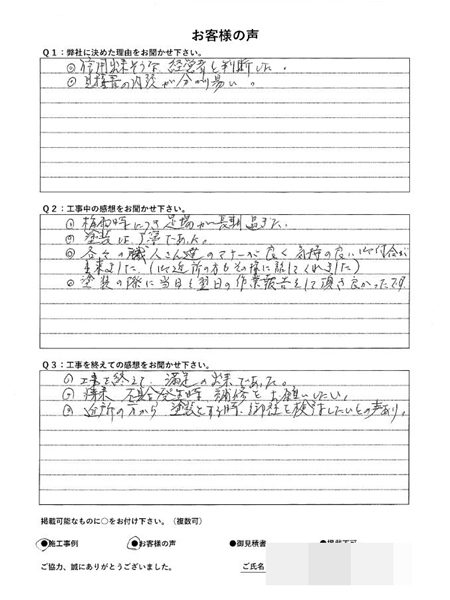 お客様の声
Q1：弊社に決めた理由をお聞かせ下さい。
◎信用出来そうな経営者と判断した。
◎見積書の内容が分り易い。
Q2：工事中の感想をお聞かせ下さい。
につき足場が長期過ぎた。
◎塗装は丁寧であった。
◎各々の職人さん達のマナーが良く気持の良いお付合が
出来ました。(ご近所の方もその様に話してくれました)
◎塗装の際に当日と翌日の作業報告をして頂き良かったです
Q3：工事を終えての感想をお聞かせ下さい。
◎工事を終えて、満足の出来であった。
◎将来不具合発生時補修をお願いしたい。
◎近所の方から塗装をする時、御社を検討したいとの声あり。
掲載可能なものに○をお付け下さい。（複数可）
●施工事例 ●お客様の声 ●御見積書 ●掲載不可
ご協力、誠にありがとうございました。 ご氏名